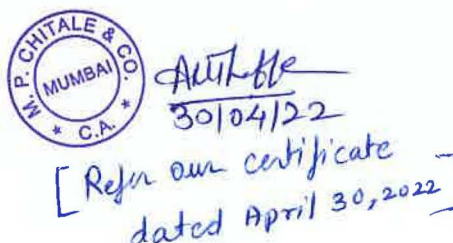 M. P. CHITALE & CO.
MUMBAI
* C.A. *
30/04/22
[ Refer our certificate
dated April 30, 2022 ]